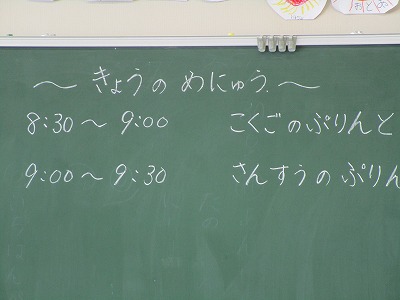 ～きょうのめにゅう～
8:30～9:00 こくごのぷりんと
9:00～9:30 さんすうのぷりん